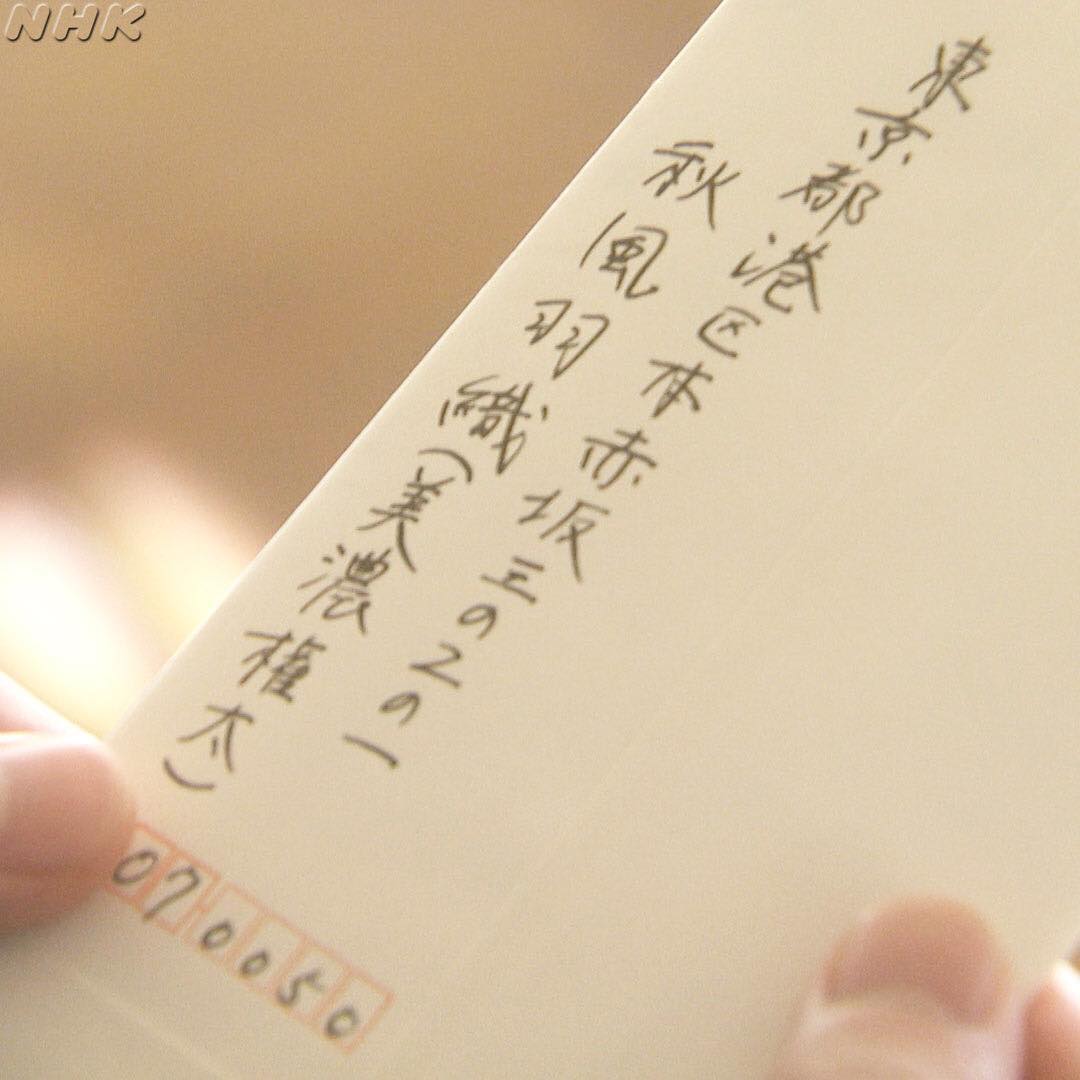 NHK
東京都港区本赤坂三の2の一
秋風羽織(美濃権太)
070050